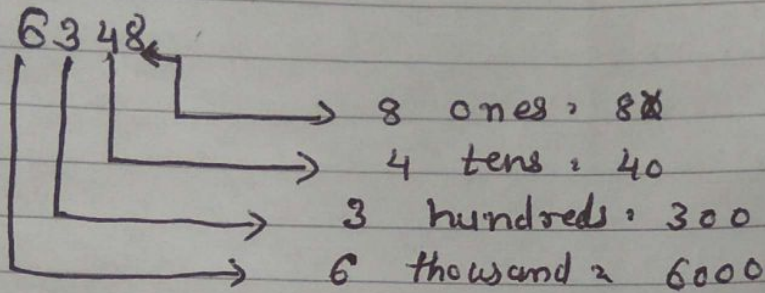 6348
8 ones = 8
4 tens = 40
3 hundreds = 300
6 thousand = 6000